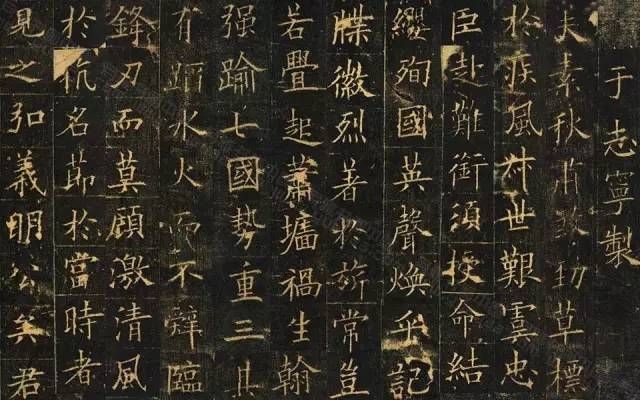 于志寧製
夫素秋肅煞勁草標
於疾風叔世艱虞忠
臣赴難銜須授命結
纓殉國英聲煥乎記
牒徽烈著於旂常豈
若釁起蕭墻禍生翰
强踰七國勢重三其
有蹈水火而不辭臨
鋒刃而莫顧激清風
於抗名節於當時者
見之弘義明公矣君